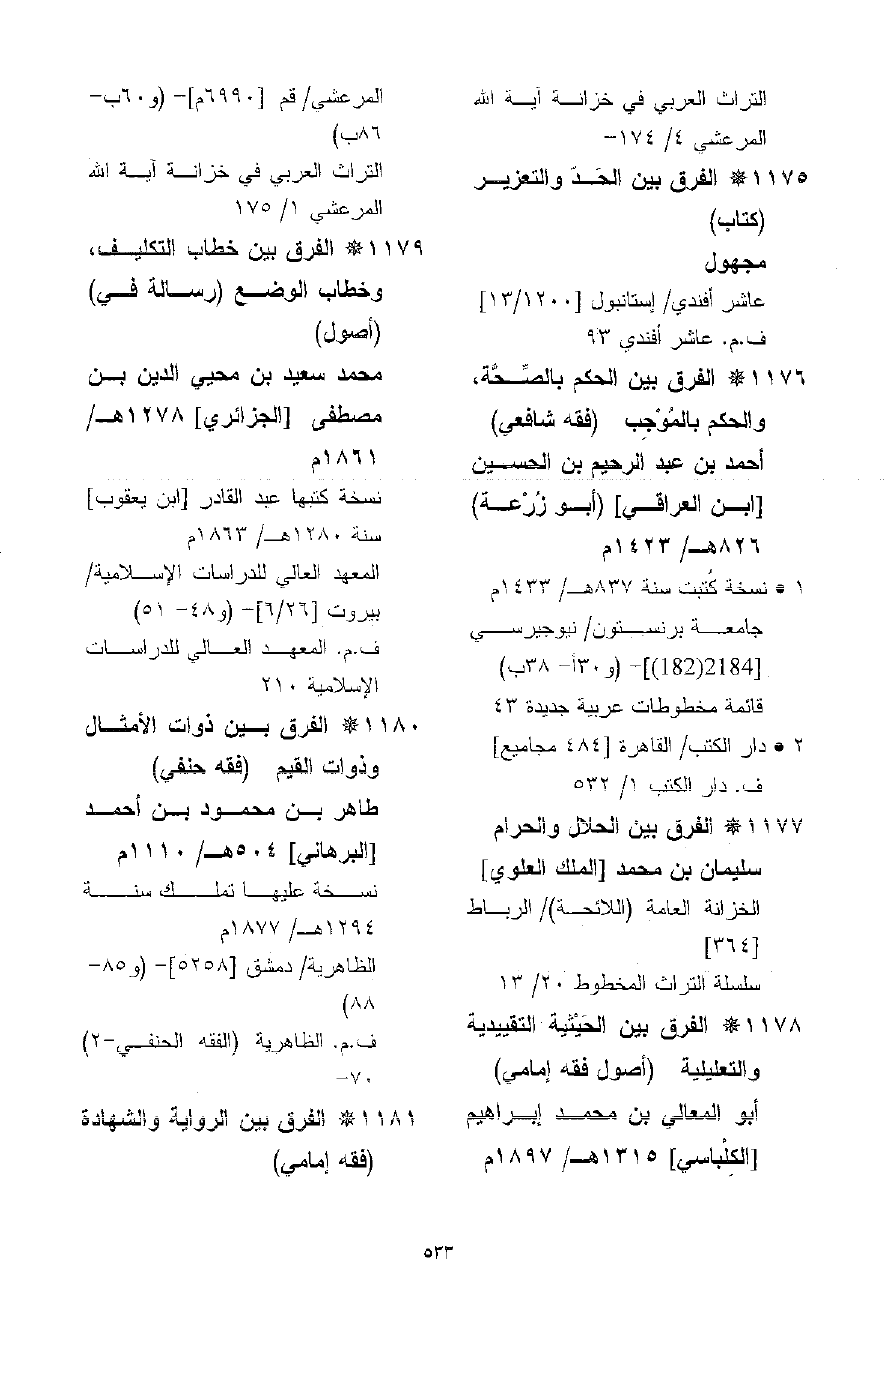 التراث العربي في خزانة آية الله
المرعشي ٤/ ١٧٤-
١١٧٥* الفرق بين الحَدّ والتعزير
(كتاب)
مجهول
عاشر أفندي/ إستانبول [١٣/١٢٠٠]
ف.م. عاشر أفندي ٩٣
١١٧٦* الفرق بين الحكم بالصِّحَّة،
والحكم بالمُوْجِب (فقه شافعي)
أحمد بن عبد الرحيم بن الحسين
[ابن العراقي] (أبو زُرْعة)
٨٢٦هـ/ ١٤٢٣م
١ * نسخة كُتبت سنة ٨٣٧هـ/ ١٤٣٣م
جامعة برنستون/ نيوجيرسي
[2184(182)]- (و٣٠أ- ٣٨ب)
قائمة مخطوطات عربية جديدة ٤٣
٢ * دار الكتب/ القاهرة [٤٨٤ مجاميع]
ف. دار الكتب ١/ ٥٣٢
١١٧٧* الفرق بين الحلال والحرام
سليمان بن محمد [الملك العلوي]
الخزانة العامة (اللائحة)/ الرباط
[٣٦٤]
سلسلة التراث المخطوط ٢٠/ ١٣
١١٧٨* الفرق بين الحَيْثية التقييدية
والتعليلية (أصول فقه إمامي)
أبو المعالي بن محمد إبراهيم
[الكلْباسي] ١٣١٥هـ/ ١٨٩٧م
المرعشي/ قم [٦٩٩٠م]- (و٦٠ب-
٨٦ب)
التراث العربي في خزانة آية الله
المرعشي ١/ ١٧٥
١١٧٩* الفرق بين خطاب التكليف،
وخطاب الوضع (رسالة في)
(أصول)
محمد سعيد بن محيي الدين بن
مصطفى [الجزائري] ١٢٧٨هـ/
١٨٦١م
نسخة كتبها عبد القادر [ابن يعقوب]
سنة ١٢٨٠هـ/ ١٨٦٣م
المعهد العالي للدراسات الإسلامية/
بيروت [٦/٢٦]- (و٤٨- ٥١)
ف.م. المعهد العالي للدراسات
الإسلامية ٢١٠
١١٨٠* الفرق بين ذوات الأمثال
وذوات القيم (فقه حنفي)
طاهر بن محمود بن أحمد
[البرهاني] ٥٠٤هـ/ ١١١٠م
نسخة عليها تملك سنة
١٢٩٤هـ/ ١٨٧٧م
الظاهرية/ دمشق [٥٢٥٨]- (و٨٥-
٨٨)
ف.م. الظاهرية (الفقه الحنفي-٢)
٧٠-
١١٨١* الفرق بين الرواية والشهادة
(فقه إمامي)
٥٣٣